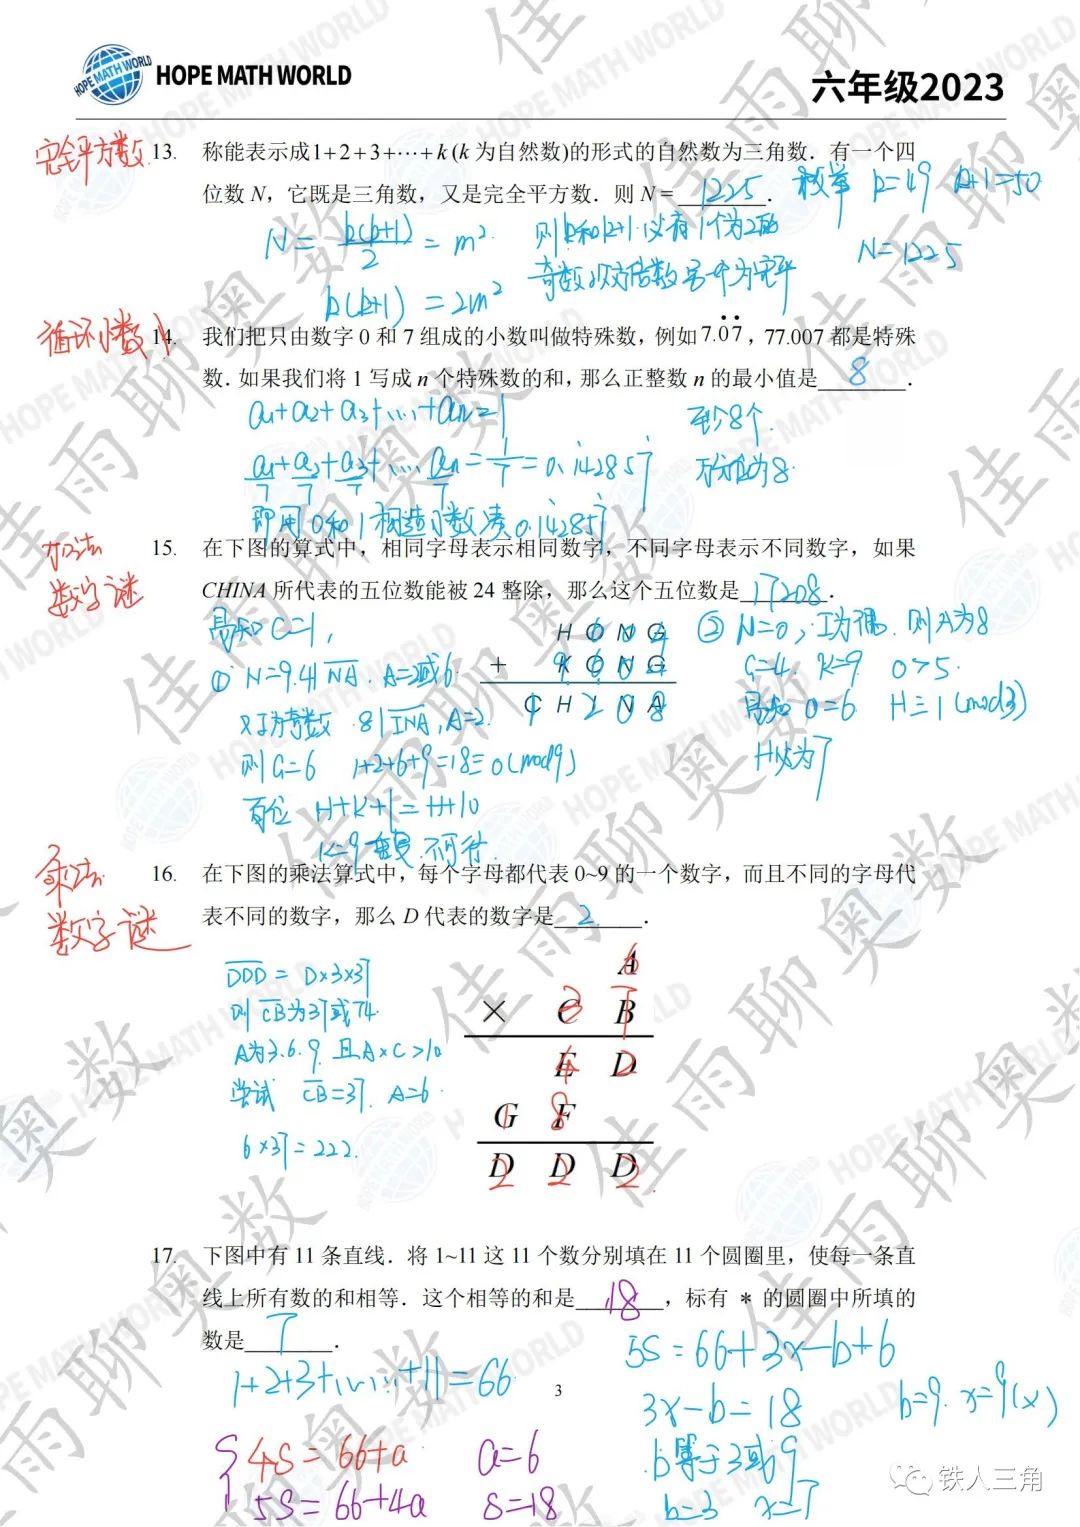 HOPE MATH WORLD
六年级2023
完全平方数
13. 称能表示成1+2+3+⋯+k (k 为自然数)的形式的自然数为三角数．有一个四
位数 N，它既是三角数，又是完全平方数．则 N = 1225．
枚举 k=49 k+1=50
N=1225
N = k(k+1)/2 = m²
则k和k+1必有1个为2的
奇数次方倍数 另一个为完平
k(k+1) = 2m²
循环小数
14. 我们把只由数字 0 和 7 组成的小数叫做特殊数，例如7.0̇7̇，77.007 都是特殊
数．如果我们将 1 写成 n 个特殊数的和，那么正整数 n 的最小值是 8．
a₁+a₂+a₃+…+aₙ=1
至少8个
a₁/7+a₂/7+a₃/7+…aₙ/7=1/7=0.1̇42857̇
万分位为8
即用0和1构造小数凑0.1̇42857̇
加法
数字谜
15. 在下图的算式中，相同字母表示相同数字，不同字母表示不同数字，如果
CHINA 所代表的五位数能被 24 整除，那么这个五位数是 17208．
易知C=1,
H O N G
+ K O N G
C H I N A
① N=9. 4|NA. A=2或6
又I为奇数 8|INA, A=2.
则G=6 1+2+6+9=18≡0(mod9)
百位 H+K+1=H+10
K=9 重复 不可行.
② N=0, I为偶. 则A为8
G=4. K=9. O>5.
易知 O=6 H≡1(mod3)
H必为7
乘法
数字谜
16. 在下图的乘法算式中，每个字母都代表 0~9 的一个数字，而且不同的字母代
表不同的数字，那么 D 代表的数字是 2．
DDD = D×3×37
则 CB为37或74.
A为3.6.9. 且A×C>10
尝试 CB=37. A=6.
6×37=222.
A 6
× C B 3 7
E D 4 2
G F 1 8
D D D 2 2 2
17. 下图中有 11 条直线．将 1~11 这 11 个数分别填在 11 个圆圈里，使每一条直
线上所有数的和相等．这个相等的和是 18，标有 * 的圆圈中所填的
数是 7．
1+2+3+…+11=66
5S=66+3x-b+6
3x-b=18
b=9. x=9(×)
b等于3或9
b=3 x=7
4S=66+a
5S=66+4a
a=6
S=18
3
铁人三角
佳雨聊奥数